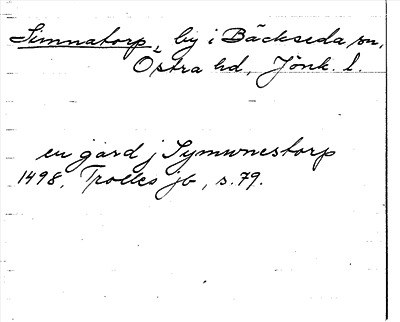 Simnatorp, by i Bäckseda sn,
Östra hd, Jönk. l.
en gard j Symwnestorp
1498, Trolles jb, s. 79.